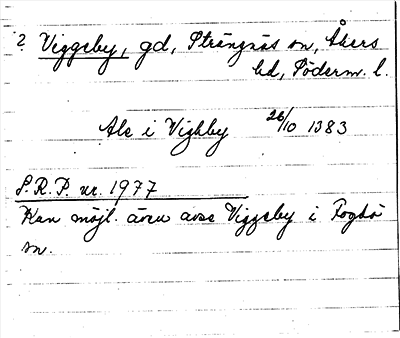 ? Viggeby, gd, Strängnäs sn, Åkers
hd, Söderm. l.
Ale i Vighby 26/10 1383
S.R.P. nr. 1977
Kan möjl. även avse Viggeby i Fogdö
sn.